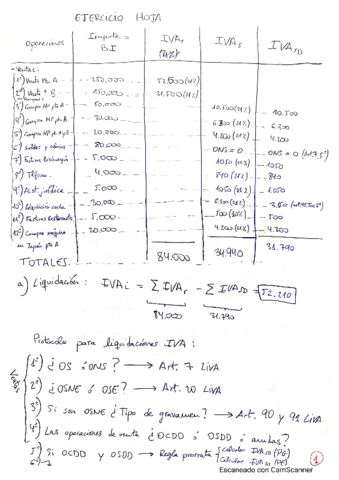 EJERCICIO HOJA
Operaciones Importe = B.I IVAr (21%) IVAs IVASD
Ventas:
1º) Venta Pto. A 250.000 52.500 (21%)
2º) Venta " B 150.000 31.500 (21%)
3º) Compra MP pto A 50.000 10.500 (21%) 10.500
4º) Compra MP pto B 6.300 (21%) 6.300
5º) Compra MP pto A y B 20.000 4.200 (21%) 4.200
6º) Sueldos y salarios 80.000 ONS = 0 ONS = 0 (Art 7.5º)
7º) Factura 5.000 1050 (21%) 1050
8º) Tlfono 4.000 840 (21%) 840
9º) Asist. jurídica 5.000 1050 (21%) 1050
10º) Adquisición coche 30.000
11º) Facturas Restaurante 5.000 500 (10%) 500
12º) Compra máquina 20.000 4.200 (21%) 4.200
en Japón pto A
TOTALES 84.000 34.940 31.790
a) Liquidación: IVAi = Σ IVAr - Σ IVASD = 52.210
84.000 31.790
Protocolo para liquidaciones IVA:
1º) ¿OS ó ONS? → Art. 7 LIVA
2º) ¿OSNE ó OSE? → Art. 20 LIVA
3º) Si son OSNE ¿Tipo de gravamen? → Art. 90 y 91 LIVA
4º) Las operaciones de venta ¿OCDD ó OSDD ó ambas?
5º) Si OCDD y OSDD → Regla prorrata Calcular IVASD (PG)
Calcular IVASD (PE)
1
Escaneado con CamScanner